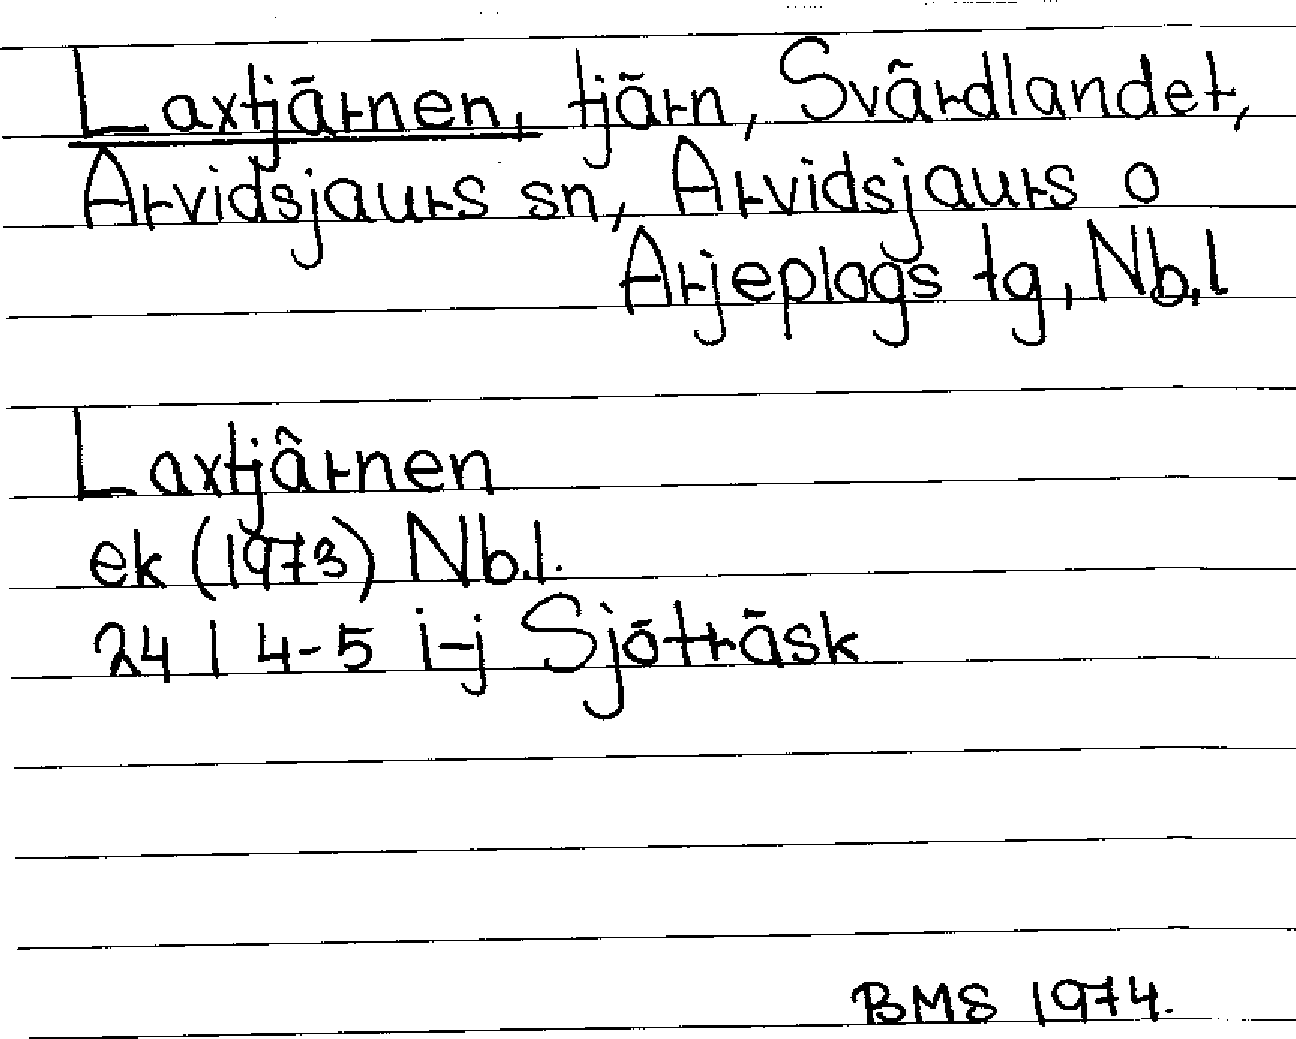 Laxtjärnen, tjärn, Svärdlandet,
Arvidsjaurs sn, Arvidsjaurs o
Arjeplogs tg, Nb.l
Laxtjärnen
ek (1973) Nb.l.
24 I 4-5 i-j Sjöträsk
BMS 1974.